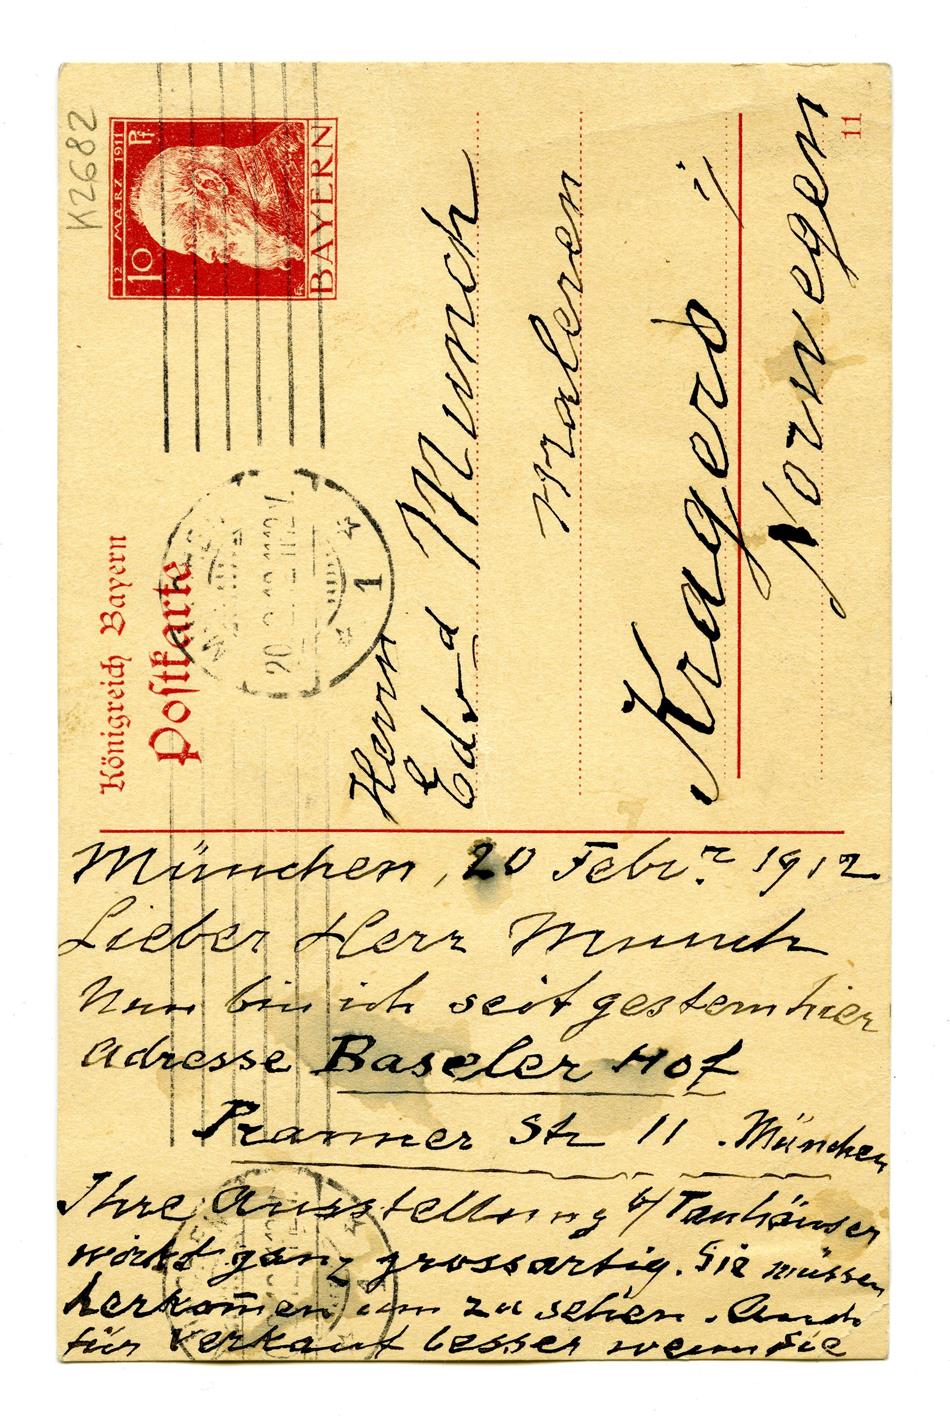 K2682
12 MÄRZ 1911
10 Pf
BAYERN
Königreich Bayern
Postkarte
20 2 12
1
Herrn
Edvd Munch
Maleren
Kragerö i/
Norwegen
11
München, 20 Febr. 1912
Lieber Herr Munch
Nun bin ich seit gestern hier
Adresse Baseler Hof
Pranner Str 11. München
Ihre Ausstellung b/ Tanhäuser
wirkt ganz grossartig. Sie müssen
herkom̄en um zu sehen. Auch
für Verkauf besser wenn Sie